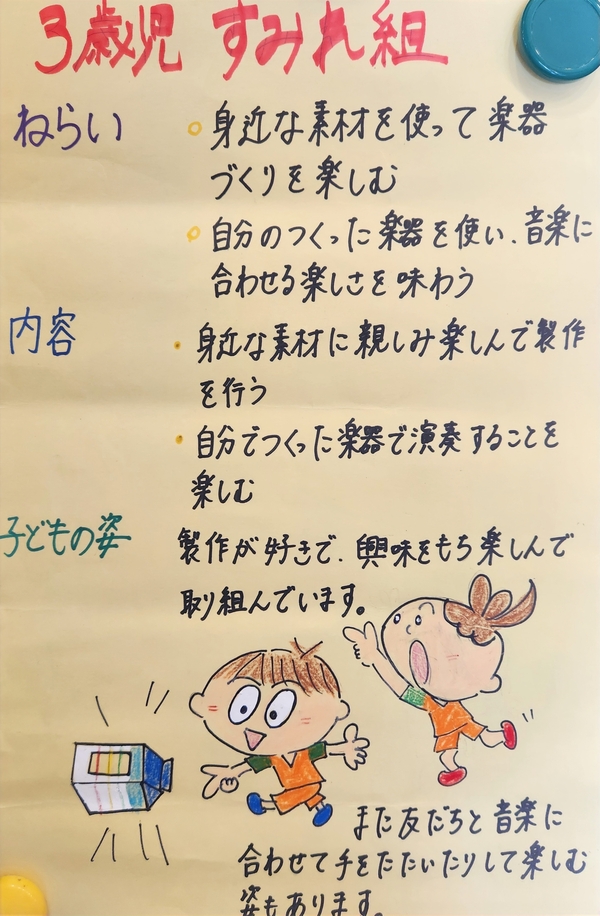 3歳児 すみれ組
ねらい
○身近な素材を使って楽器
づくりを楽しむ
○自分のつくった楽器を使い、音楽に
合わせる楽しさを味わう
内容
・身近な素材に親しみ楽しんで製作
を行う
・自分でつくった楽器で演奏することを
楽しむ
子どもの姿
製作が好きで、興味をもち楽しんで
取り組んでいます。
また友だちと音楽に
合わせて手をたたいたりして楽しむ
姿もあります。